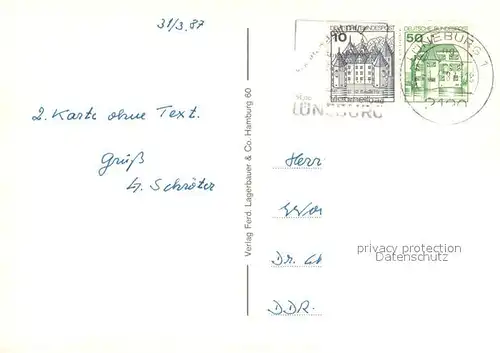 31/3.87
2. Karte ohne Text.
Gruß
H. Schröter
Verlag Ferd. Lagerbauer & Co. Hamburg 60
10
DEUTSCHE BUNDESPOST
50
DEUTSCHE BUNDESPOST
LÜNEBURG 1
LÜNEBURG
Herrn
Dr.
DDR.
privacy protection
Datenschutz